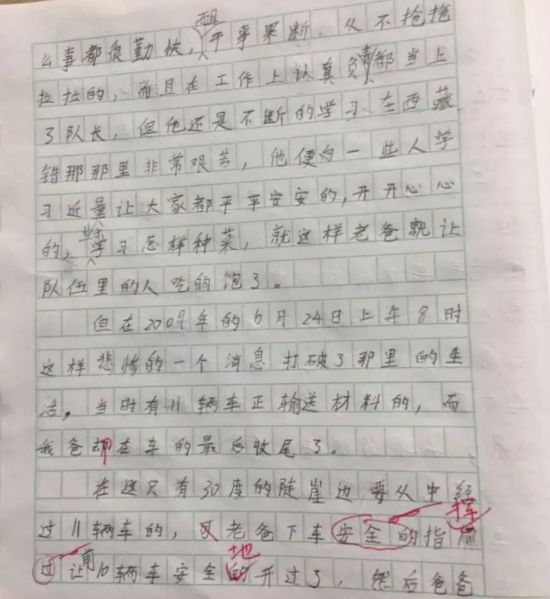 么事都很勤快,而且干事果断,从不拖拖
拉拉的,而且在工作上认真负责都当上
了队长,但他还是不断的学习在西藏
错那那里非常艰苦,他便向一些人学
习近量让大家都平平安安的,开开心心
的,学习怎样种菜,就这样老爸就让
队伍里的人吃的饱了。
但在2009年的6月24日上午8时
这样悲惨的一个消息打破了那里的生
活。当时有11辆车正输送材料的,而
我爸却在车的最后收尾了。
在这只有30度的陡崖边要从中经
过11辆车的,又老爸下车安全的指挥
过让前10辆车安全的地开过了,然后爸爸